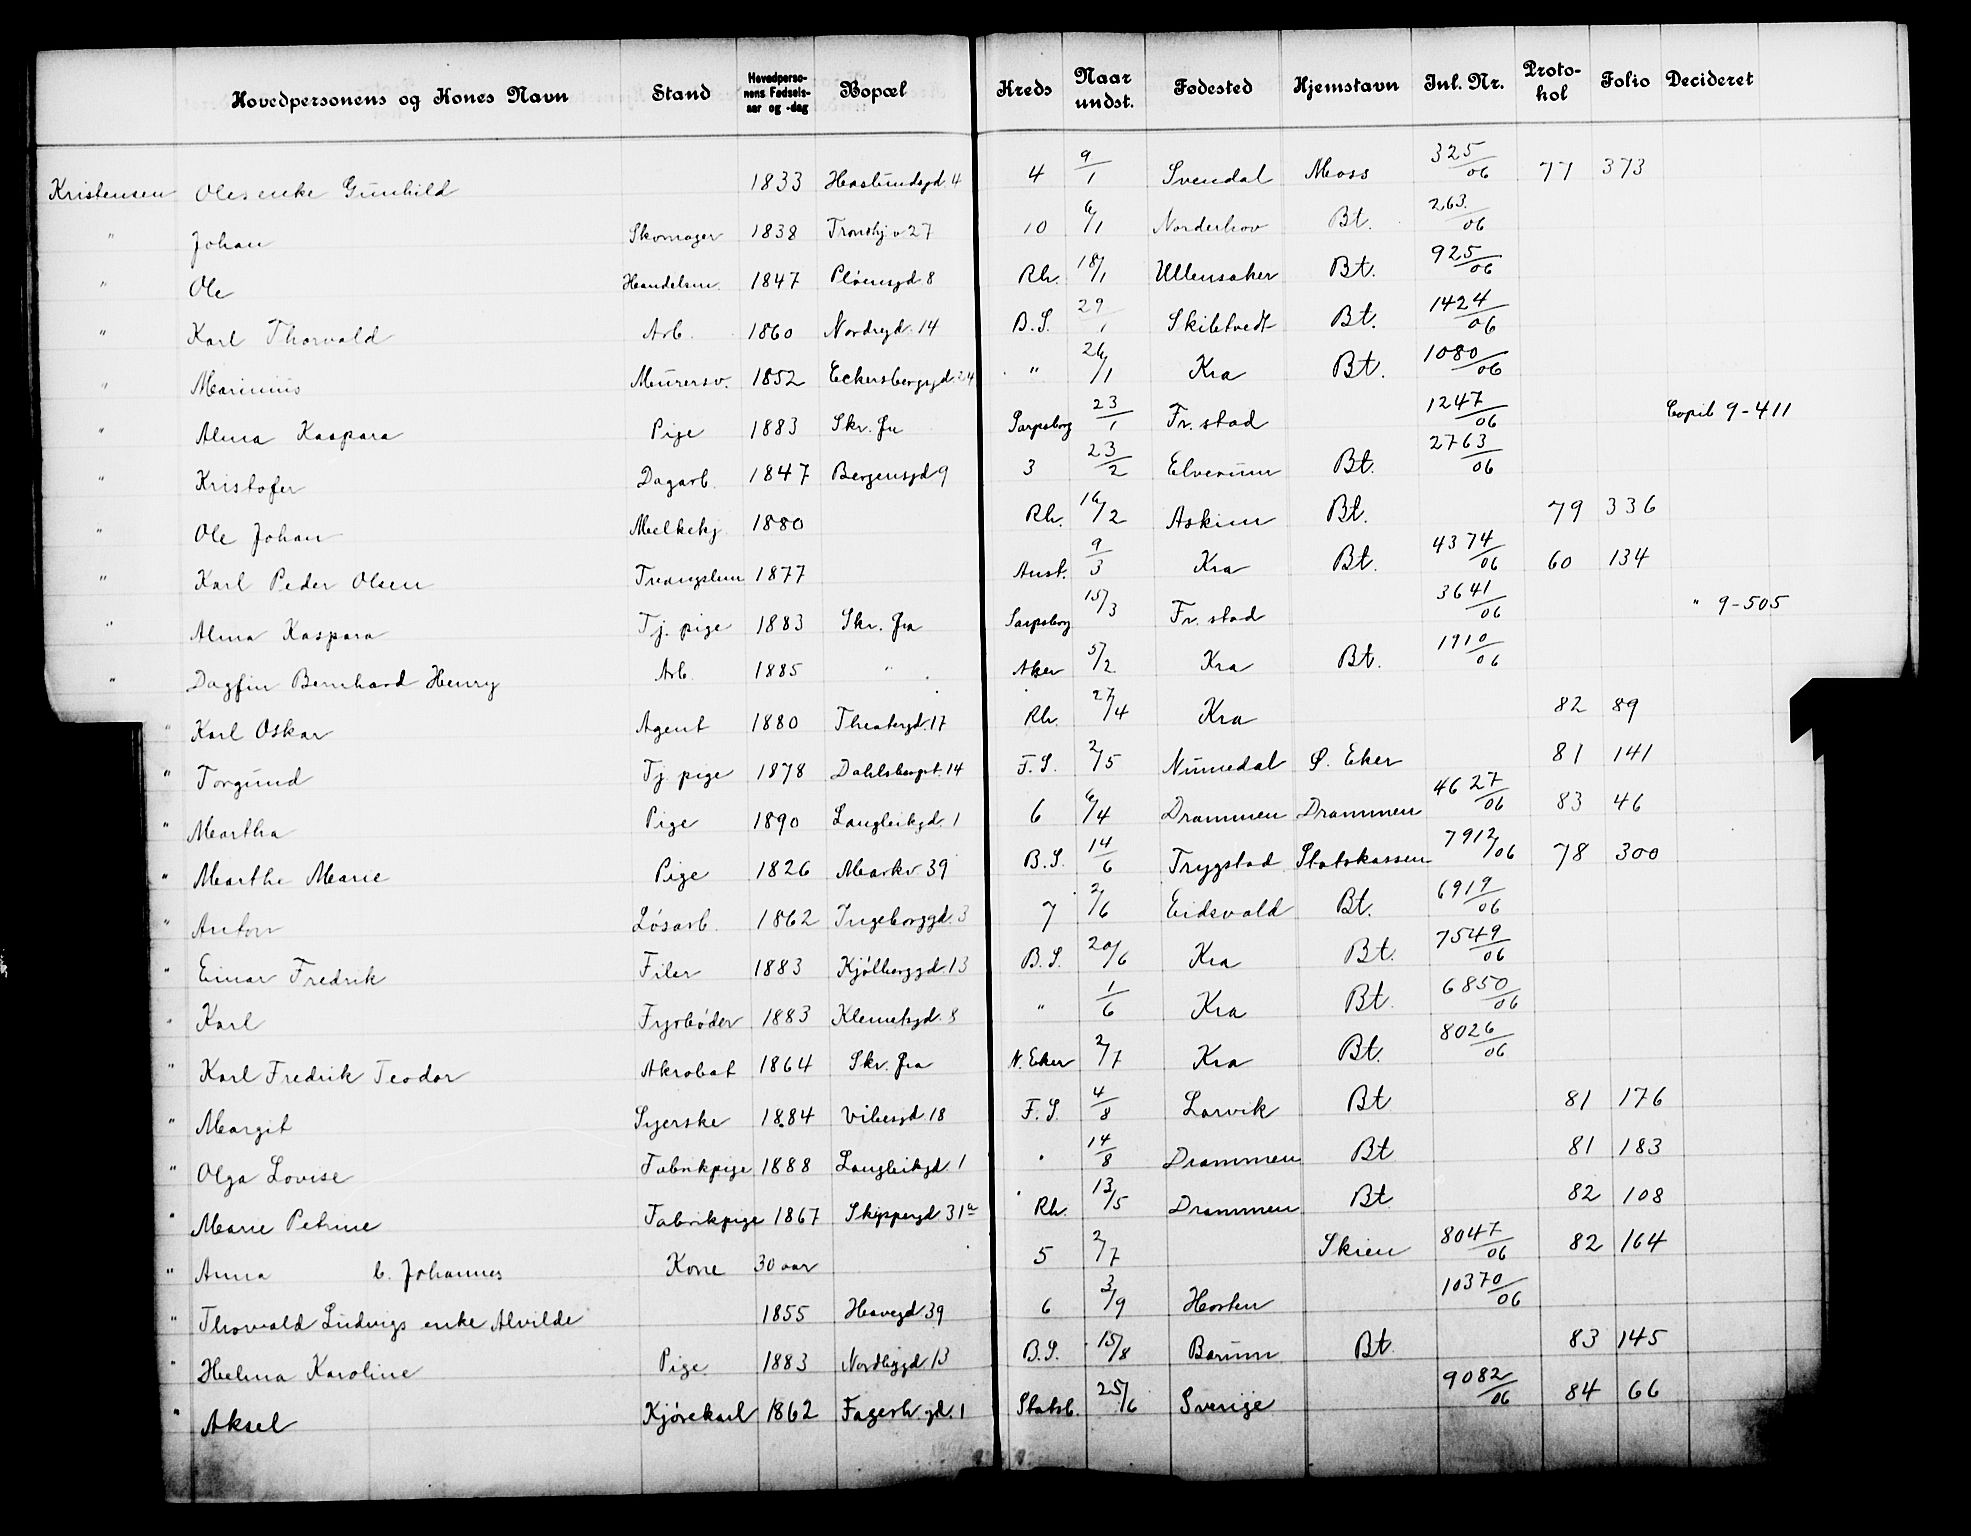 Hovedpersonens og Kones Navn Stand Hovedpersonens Fødselsaar og -dag Bopæl Kreds Naar undst. Fødested Hjemstavn Jnl. Nr. Protokol Folio Decideret
Kristensen Oles enke Gunhild 1833 Haslundsgd. 4 4 9/1 Svendal Moss 325/06 77 373
" Johan Skomager 1838 Tronhj v 27 10 6/1 Norderhov Bt. 263/06
" Ole Handelsm. 1847 Pløensgd 8 Rh. 18/1 Ullensaker Bt. 925/06
" Karl Thorvald Arb. 1860 Nordregd. 14 B.S. 29/1 Skibtvedt Bt. 1424/06
" Marinius Murersv. 1852 Eckersbergsgd. 24 " 26/1 Kra Bt. 1080/06
" Alma Kaspara Pige 1883 Skr. fra Sarpsborg 23/1 Fr. stad 1247/06 Copib 9-411
" Kristofer Dagarb. 1847 Bergensgd 9 3 23/2 Elverum Bt. 2763/06
" Ole Johan Melkekj 1880 Rh. 16/2 Askim Bt. 79 336
" Karl Peder Olsen 1877 Anst. 9/3 Kra Bt. 4374/06 60 134
" Alma Kaspara Tj. pige 1883 Skr. fra Sarpsborg 15/3 Fr. stad 3641/06 " 9-505
" Dagfin Bernhard Henry Arb. 1885 " Aker 5/2 Kra Bt. 1910/06
" Karl Oskar Agent 1880 Theatergd. 17 Rh. 27/4 Kra 82 89
" Torgund Tj. pige 1878 Dahlsbergst. 14 F.S. 2/5 Numedal Ø. Eker 81 141
" Martha Pige 1890 Langleikgd. 1 6 6/4 Drammen Drammen 4627/06 83 46
" Marthe Marie Pige 1826 Markv 39 B.S. 14/6 Trygstad Statskassen 7912/06 78 300
" Anton Løsarb. 1862 Ingeborggd. 3 7 2/6 Eidsvold Bt. 6919/06
" Einar Fredrik Filer 1883 Kjølberggd. 13 B.S. 20/6 Kra Bt. 7549/06
" Karl Fyrbøder 1883 Klemetsgd. 8 " 1/6 Kra Bt. 6850/06
" Karl Fredrik Teodor Akrobat 1864 Skr. fra N. Eker 2/7 Kra Bt. 8026/06
" Margit Syerske 1884 Vibesgd. 18 F.S. 4/8 Larvik Bt 81 176
" Olga Lovise Fabrikpige 1888 Langleikgd. 1 " 14/8 Drammen Bt 81 183
" Marie Petrine Fabrikpige 1867 Skippergd. 31a Rh. 13/5 Drammen Bt 82 108
" Anna b. Johannes Kone 30 aar 5 2/7 Skien 8047/06 82 164
" Thorvald Ludvigs enke Alvilde 1855 Havegd 39 6 3/9 Horten 10370/06
" Helma Karoline Pige 1883 Nordbygd 13 B.S. 15/8 Bærum Bt. 83 145
" Aksel Kjørekarl 1862 Fagerh. gd. 1 Statsb. 25/6 Sverige 9082/06 84 66